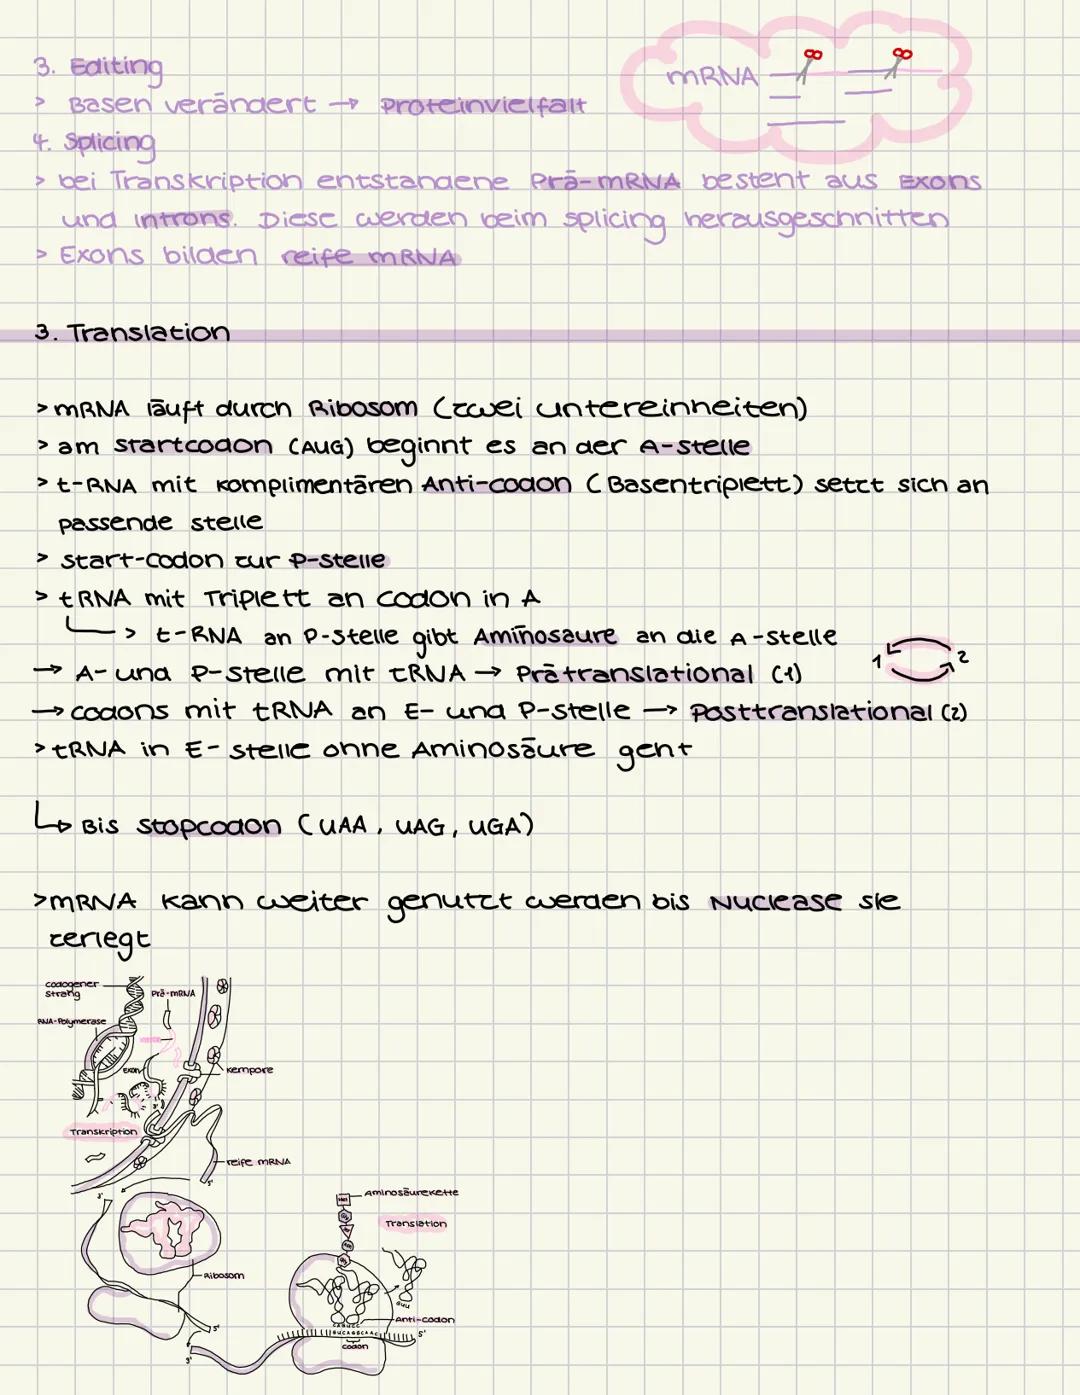 3. Editing
> Basen verändert → Proteinvielfalt
mRNA
4. Splicing
> bei Transkription entstandene Prä-mRNA besteht aus Exons
und Introns. Diese werden beim splicing herausgeschnitten
> Exons bilden reife mRNA
3. Translation
> mRNA läuft durch Ribosom (zwei untereinheiten)
> am startcodon (AUG) beginnt es an der A-stelle
> t-RNA mit komplimentären Anti-codon (Basentriplett) setzt sich an
passende stelle
> start-codon zur P-stelle
> tRNA mit Triplett an codon in A
> t-RNA an P-stelle gibt Aminosäure an die A-stelle
→ A- und P-stelle mit tRNA → Prätranslational (1)
1 2
→ codons mit tRNA an E- und P-stelle → Posttranslational (2)
> tRNA in E-stelle ohne Aminosäure geht
↳ Bis stopcodon (UAA, UAG, UGA)
> mRNA kann weiter genutzt werden bis Nuclease sie
zerlegt
codogener
strang
Prä-mRNA
RNA-Polymerase
Exon
Kernpore
Transkription
reife mRNA
3'
5'
Aminosäurekette
Translation
Ribosom
Anti-codon
5'
5'
codon
3'